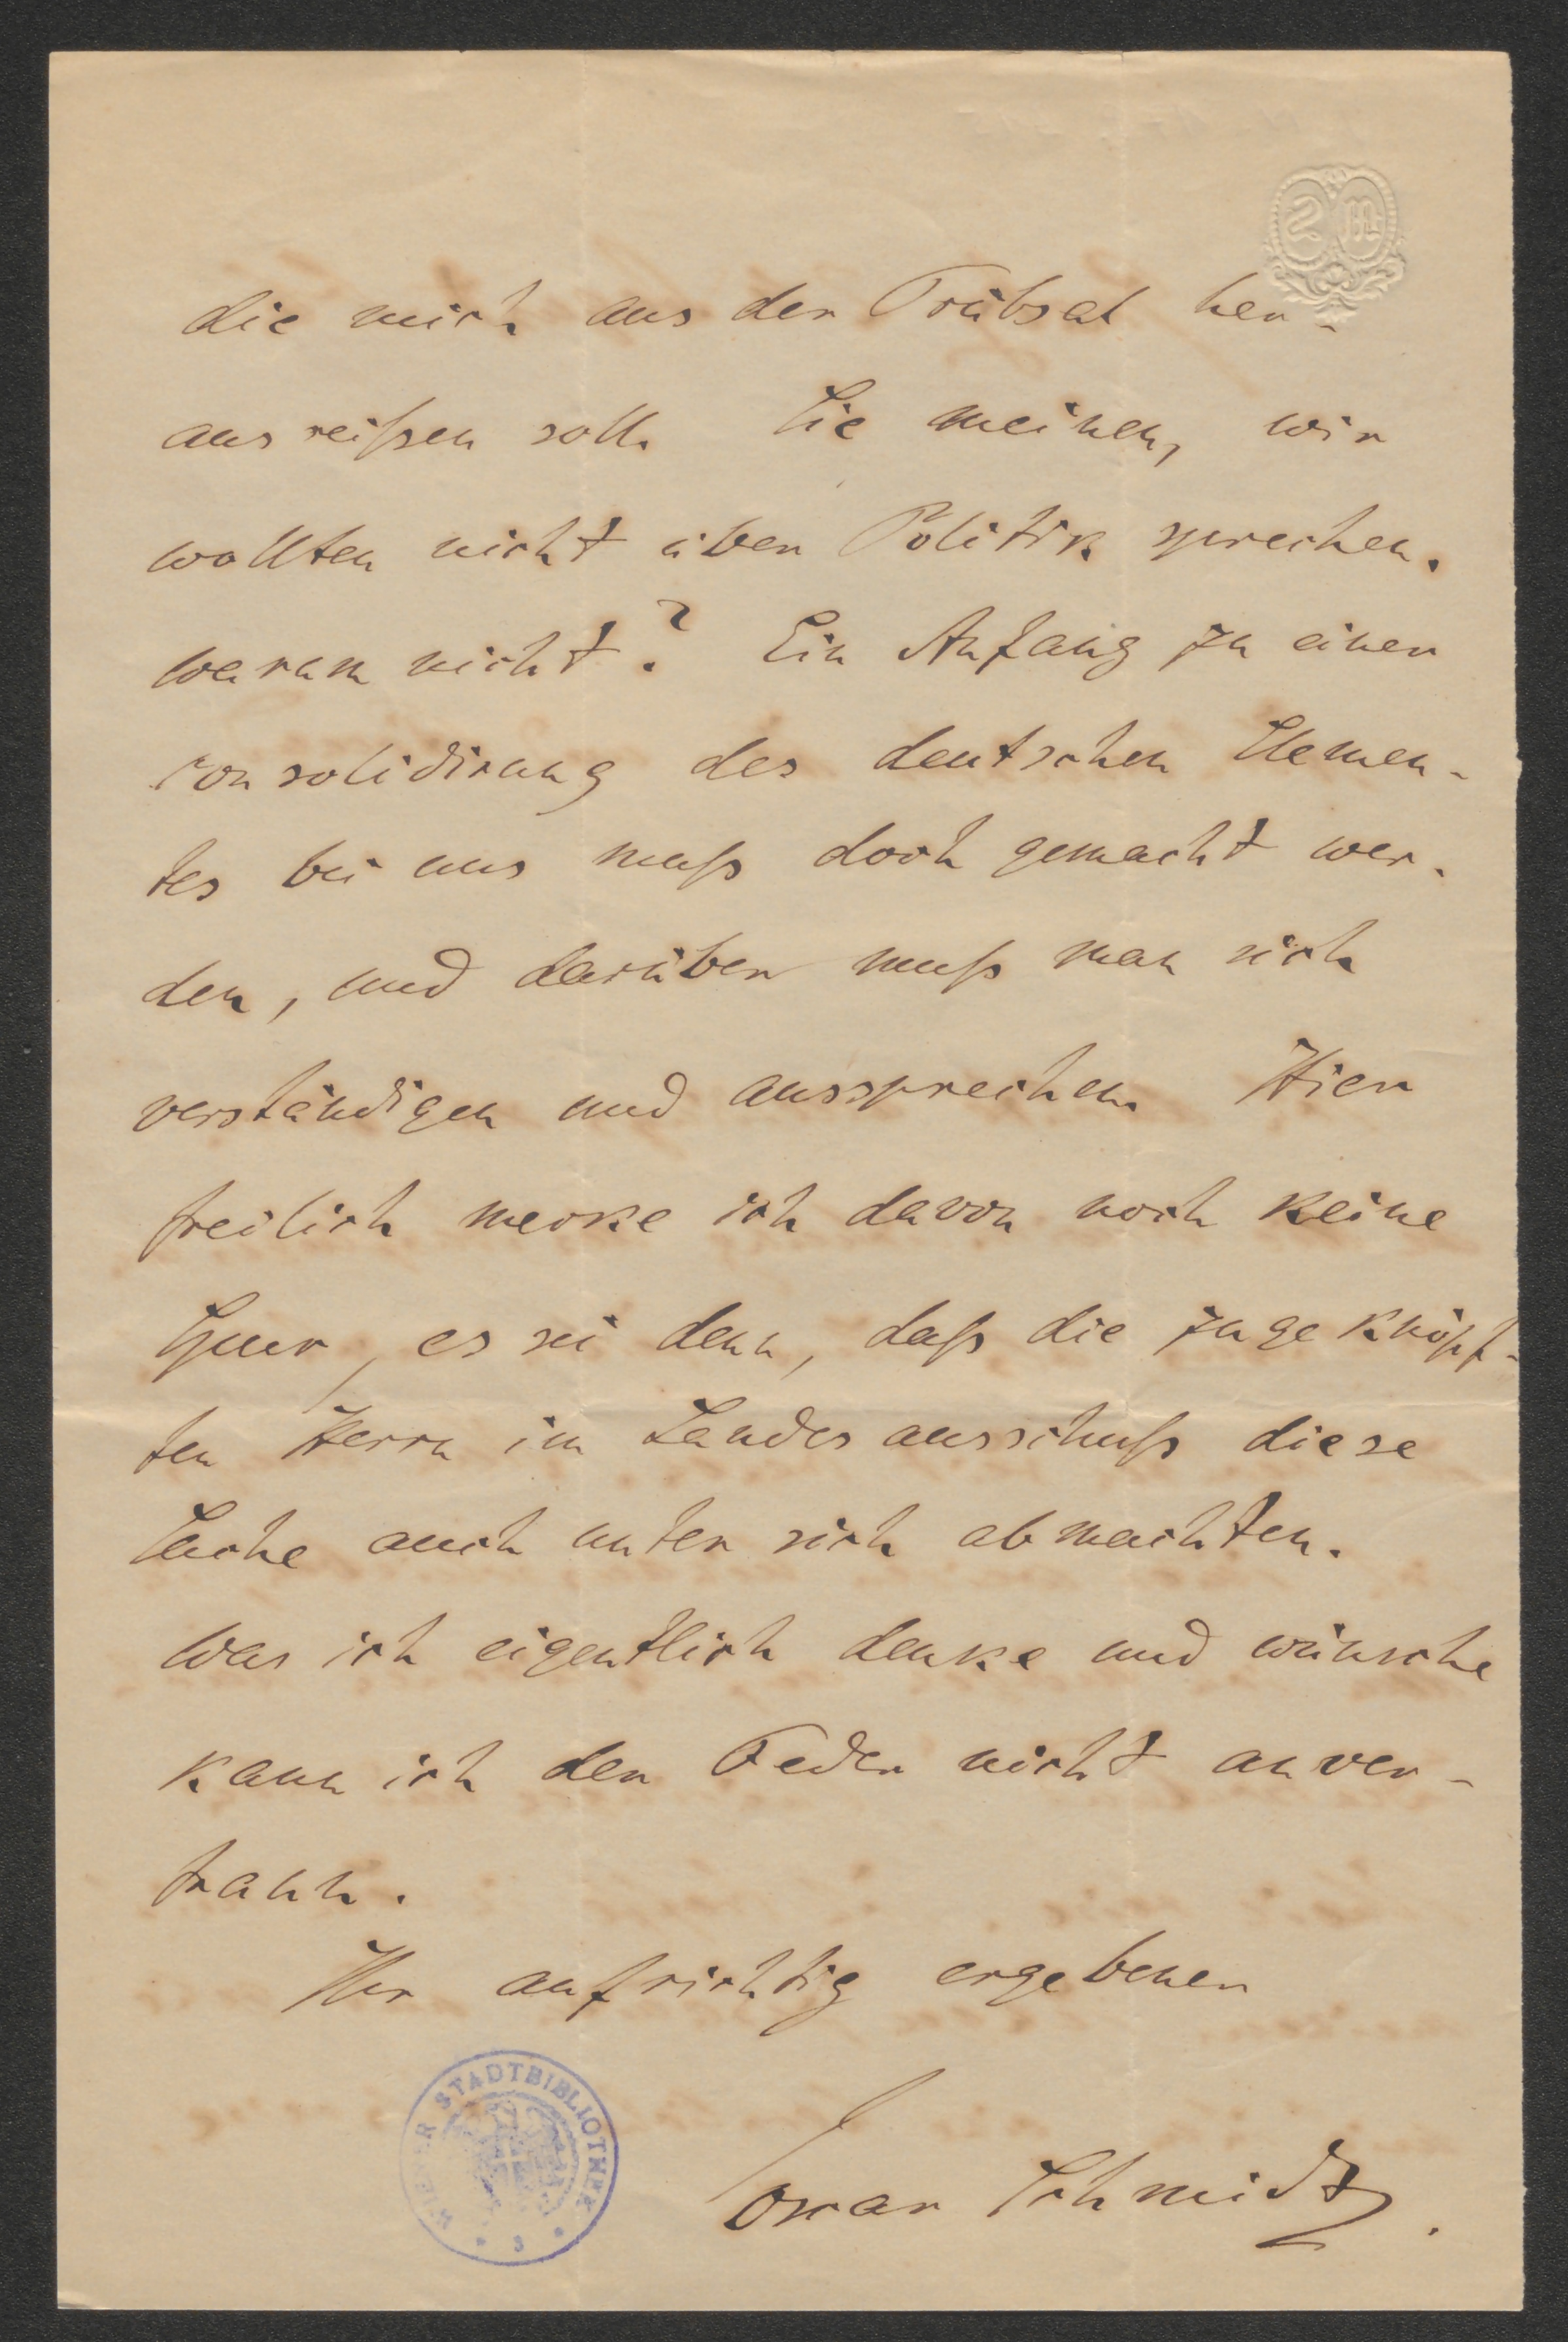 die mich aus der Trübsal her-
ausreißen soll. Sie meinen, wir
wollten nicht über Politik sprechen.
Warum nicht? Ein Anfang zu einer
Consolidirung des deutschen Elemen-
tes bei uns muß doch gemacht wer-
den, und darüber muß man sich
verständigen und aussprechen. Hier
freilich merke ich davon noch keine
Spur, es sei denn, daß die zugeknöpf-
ten Herrn im Landesausschuß diese
Sache auch unter sich abmachten.
Was ich eigentlich denke und wünsche
kann ich der Feder nicht anver-
traun.
Ihr aufrichtig ergebener
Oscar Schmidt.
2 M
WIENER STADTBIBLIOTHEK
* 3 *